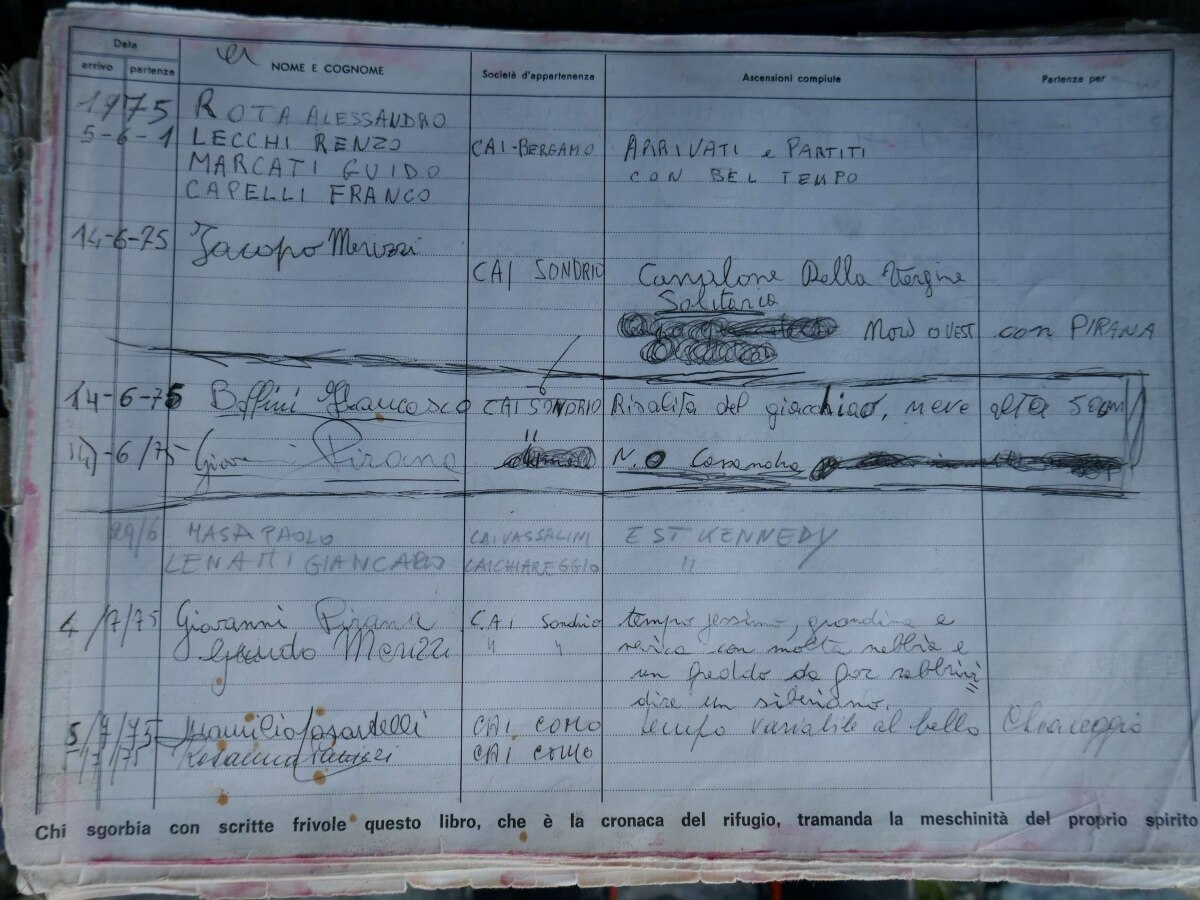 Data
arrivo partenza NOME E COGNOME Società d'appartenenza Ascensioni compiute Partenza per
1975 ROTA ALESSANDRO
5-6-1 LECCHI RENZO CAI-BERGAMO ARRIVATI e PARTITI
MARCATI GUIDO CON BEL TEMPO
CAPELLI FRANCO
14-6-75 Jacopo Merizzi
CAI SONDRIO Campilone Della Vergine
Solitaria
NORD OVEST con PIRANA
14-6-75 Boffini Francesco CAI SONDRIO Risalita del giacchiao, neve alta 50cm
14-6/75 Giovanni Pirana " N.O Cassandra
29/6 MASA PAOLO CAI VASSALINI EST KENNEDY
LENATTI GIANCARLO CAI CHIAREGGIO "
4/7/75 Giovanni Pirana C.A.I Sondrio tempo jessimo, grandina e
Guido Merizzi " " nevica con molta nebbia e
un freddo da far rabbrividire un siberiano.
5/7/75 Maurilio CAI COMO tempo variabile al bello Chiareggio
5/7/75 Rosanna CAI COMO
Chi sgorbia con scritte frivole questo libro, che è la cronaca del rifugio, tramanda la meschinità del proprio spirito